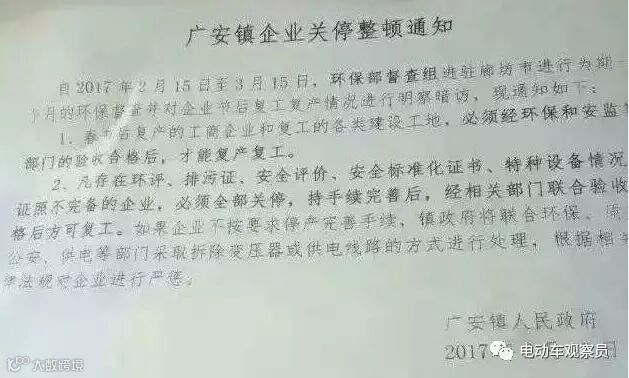 广安镇企业关停整顿通知
自2017年2月15日至3月15日，环保部督查组进驻廊坊市进行为期一
个月的环保督查并对企业节后复工复产情况进行明察暗访，现通知如下：
1、春节后复产的工商企业和复工的各类建设工地，必须经环保和安监等
部门的验收合格后，才能复产复工。
2、凡存在环评、排污证、安全评价、安全标准化证书、特种设备情况
证照不完备的企业，必须全部关停，持手续完善后，经相关部门联合验收
格后方可复工。如果企业不按要求停产完善手续，镇政府将联合环保、
公安、供电等部门采取拆除变压器或供电线路的方式进行处理，根据相关
律法规对企业进行严惩。
广安镇人民政府
2017年
大数跨境
电动车观察员